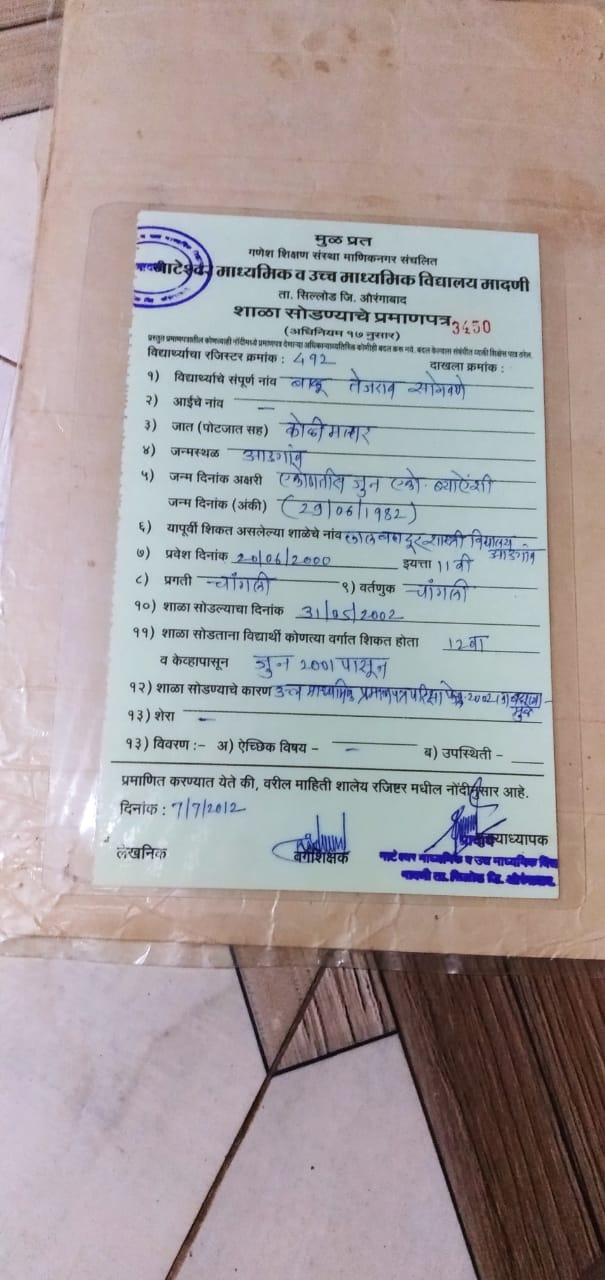 मुळ प्रत
गणेश शिक्षण संस्था माणिकनगर संचलित
नाटेश्वर माध्यमिक व उच्च माध्यमिक विद्यालय मादणी
ता. सिल्लोड जि. औरंगाबाद
शाळा सोडण्याचे प्रमाणपत्र 3450
(अधिनियम १७ नुसार)
प्रस्तुत प्रमाणपत्रातील कोणत्याही नोंदीमध्ये प्रमाणपत्र देणाऱ्या अधिकाऱ्याव्यतिरिक्त कोणीही बदल करू नये. बदल केल्यास संबंधीत व्यक्ती शिक्षेस पात्र ठरेल.
विद्यार्थ्याचा रजिस्टर क्रमांक : 492 दाखला क्रमांक :
१) विद्यार्थ्याचे संपूर्ण नांव बाळू तेजराव सोनवणे
२) आईचे नांव –
३) जात (पोटजात सह) कोळी मल्हार
४) जन्मस्थळ आडगांव
५) जन्म दिनांक अक्षरी एकोणतीस जुन एको. ब्याऐंशी
जन्म दिनांक (अंकी) (29/06/1982)
६) यापूर्वी शिकत असलेल्या शाळेचे नांव लालबहादूर शास्त्री विद्यालय आडगांव
७) प्रवेश दिनांक 20/06/2000 इयत्ता 11 वी
८) प्रगती चांगली ९) वर्तणुक चांगली
१०) शाळा सोडल्याचा दिनांक 31/05/2002
११) शाळा सोडताना विद्यार्थी कोणत्या वर्गात शिकत होता 12 वी
व केव्हापासून जुन 2001 पासून
१२) शाळा सोडण्याचे कारण उच्च माध्यमिक प्रमाणपत्र परिक्षा फेब्रु. 2002
१३) शेरा –
१३) विवरण :- अ) ऐच्छिक विषय – – ब) उपस्थिती –
प्रमाणित करण्यात येते की, वरील माहिती शालेय रजिष्टर मधील नोंदीनुसार आहे.
दिनांक : 7/7/2012
लेखनिक वर्गशिक्षक मुख्याध्यापक
नाटेश्वर माध्यमिक व उच्च माध्यमिक विद्या
मादणी ता. सिल्लोड जि. औरंगाबाद.